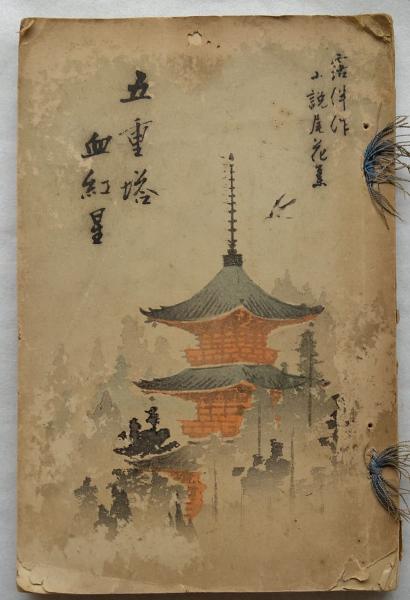 露伴作
小説尾花集
五重塔
血紅星